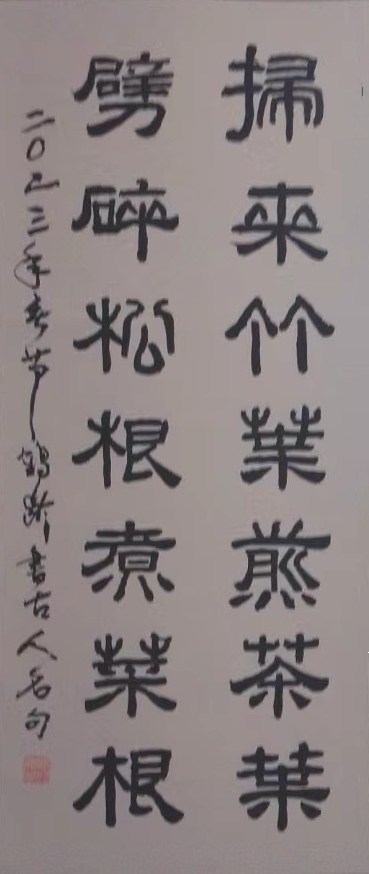 掃來竹葉煎茶葉
劈碎松根煮菜根
二0二三年春节鹤龄书古人名句